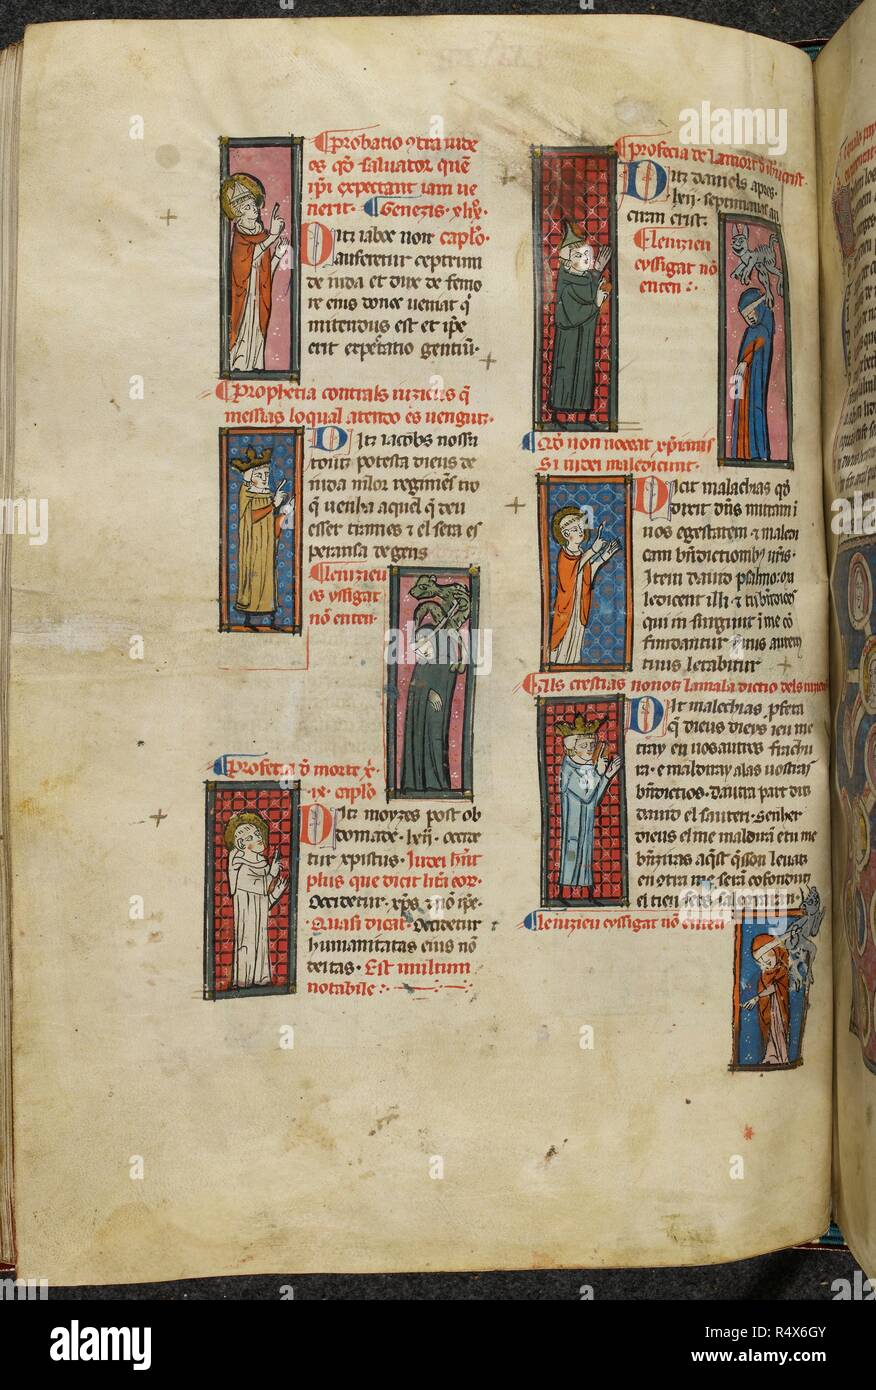 Probatio contra iude
os quod saluator quem
ipsi expectant iam ue
nerit. Genezis. xlix.
Dit iacob non capitulo.
auferetur ceptrum
de iuda et dux de femo
re eius donec ueniat qi
mitendus est et ipse
erit expectatio gentium.
Prophetia contrals iuzieus que
messias loqual atendo es uengutz.
Ditz iacobs
potesta dieus de
iuda
que uenha aquel que deu
esser trames e el sera es
peransa de gens
Le iuzieu
es yssigat
non enten.
Profetia de morte
ix. capitulo
Ditz moyzes post eb
domade. lxii. occide
tur xpistus. Iudei
plus que dicit litera eor.
Occidetur. xps e non ipse.
Quasi dicat. Occidetur
humanitatas eius non
deitas. Est multum
notabile
Profecia de la mort de ihu crist.
Ditz daniels apres.
lxii. septimanas
Le iuzieu
eyssigat non
enten
Quod non noceat xpianis
Si iudei maledicunt.
Dicit malachias quod
dixit dominus mittam in
uos egestatem e maledi
cam benedictionibus uestris.
Item dauid psalmo:
ledicent illi. e tu benedices
qui insurgunt in me con
fundantur seruus autem
tuus letabitur
Als crestias non not la mala dictio dels
Dit malechias profeta
que dieus dieys ieu me
tray en uos autres frachu
ra. e malediray a las uostras
benedictios. Dautra part ditz
dauid el sauteri. Senher
dieus el me maldiran e tu me
beneziras aquist que son leuatz
encontra me seran cofondutz
el tieu sers
Le iuzieu eyssigat non enten
alamy
Image ID: R4X6GY
www.alamy.com